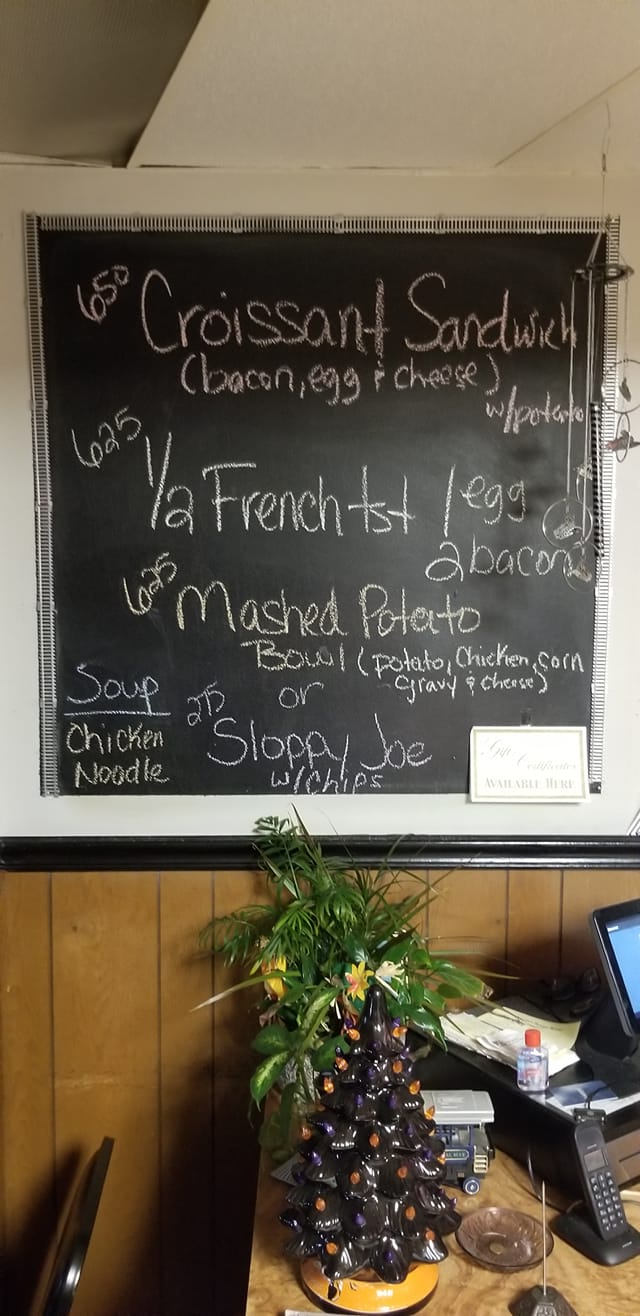 650 Croissant Sandwich
(bacon, egg & cheese)
w/potato
625 1/2 French tst 1 egg
2 bacon
625 Mashed Potato
Bowl (potato, Chicken, corn
gravy & cheese)
or
Soup
Chicken
Noodle
275 Sloppy Joe
w/chips
Gift
Certificates
AVAILABLE HERE